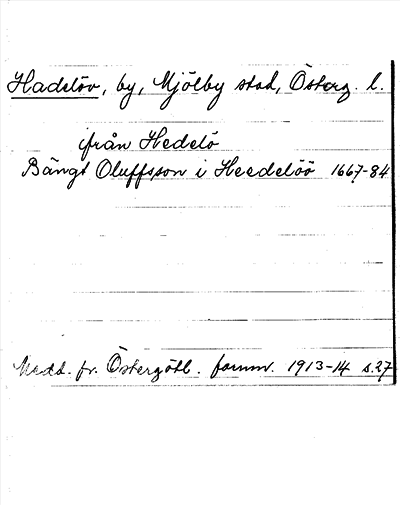 Hadelöv, by, Mjölby stad, Österg. l.
ifrån Hedelö
Bängt Oluffsson i Heedelöö 1667-84
Medd. fr. Östergötl. fornm. 1913-14 s.27